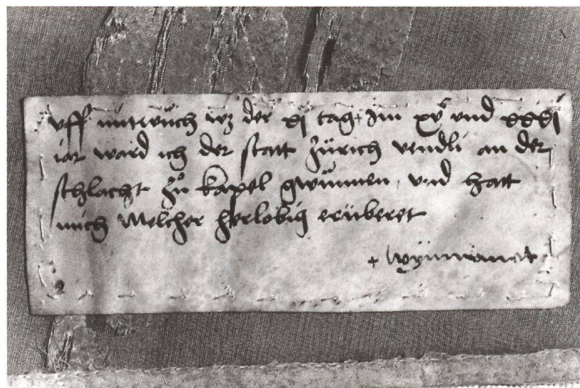 uff mitwuch wz der xj tag, Im xvᶜ und xxxj
iar ward ich der statt Zürich vendli an der
schlacht Zů kapel gwunnen, und hatt
mich Melcher herlobig erüberet